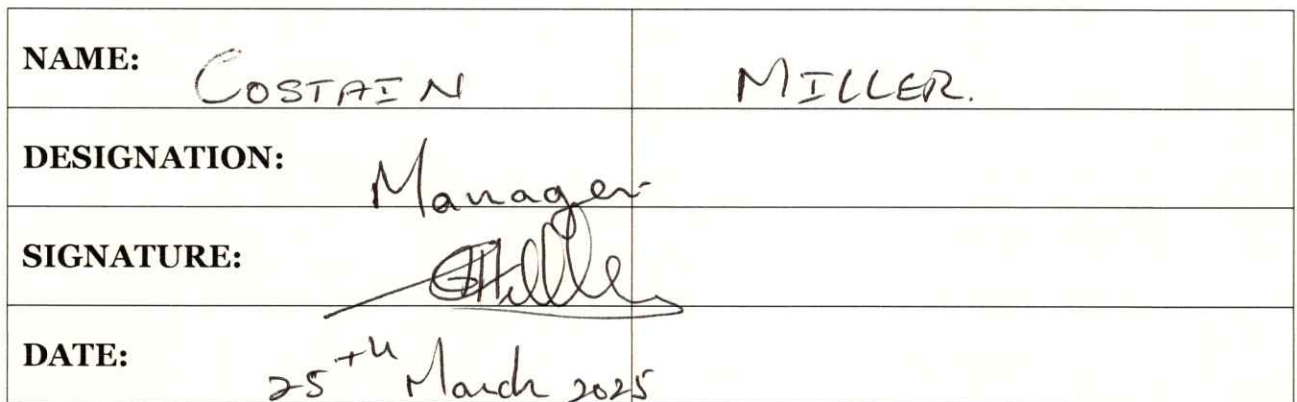 NAME: COSTAIN MILLER.
DESIGNATION: Manager
SIGNATURE:
DATE: 25th March 2025